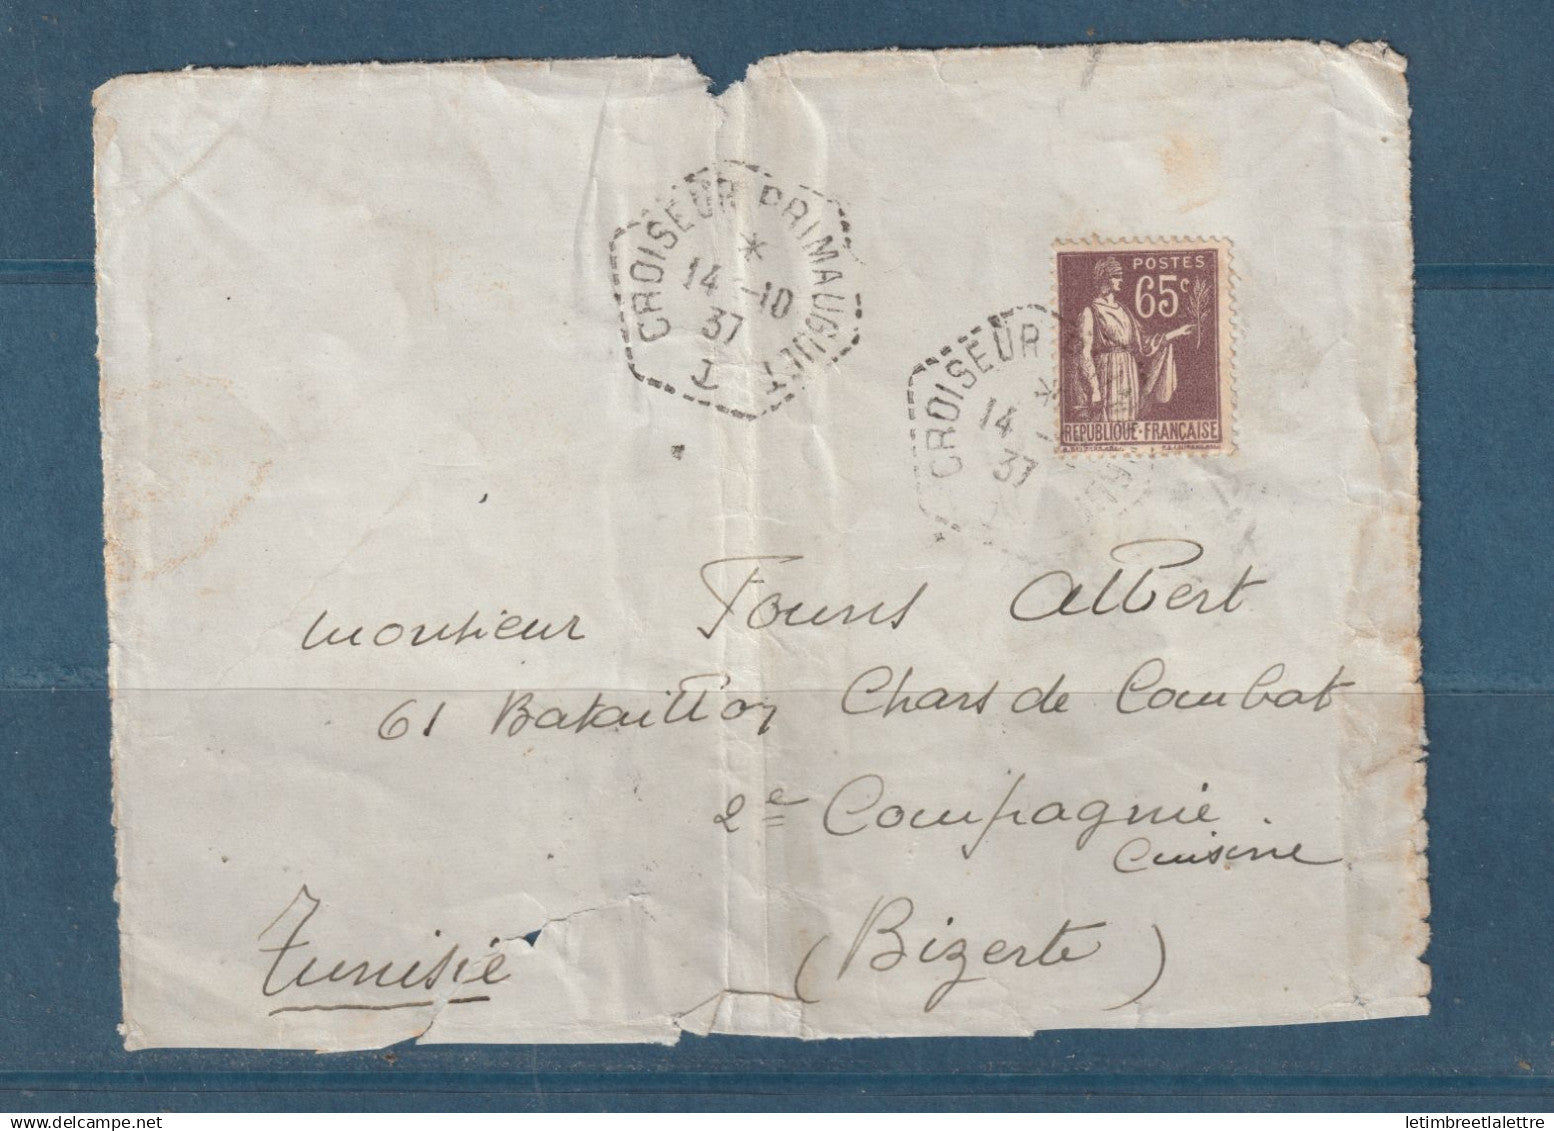 CROISEUR PRIMAUGUET
*
14 -10
37
POSTES
65c
REPUBLIQUE·FRANÇAISE
CROISEUR
*
14 -
37
monsieur Touns Albert
61 Bataillon Chars de Combat
2e Compagnie.
Cuisine
Tunisie (Bizerte)
letimbreetlalettre